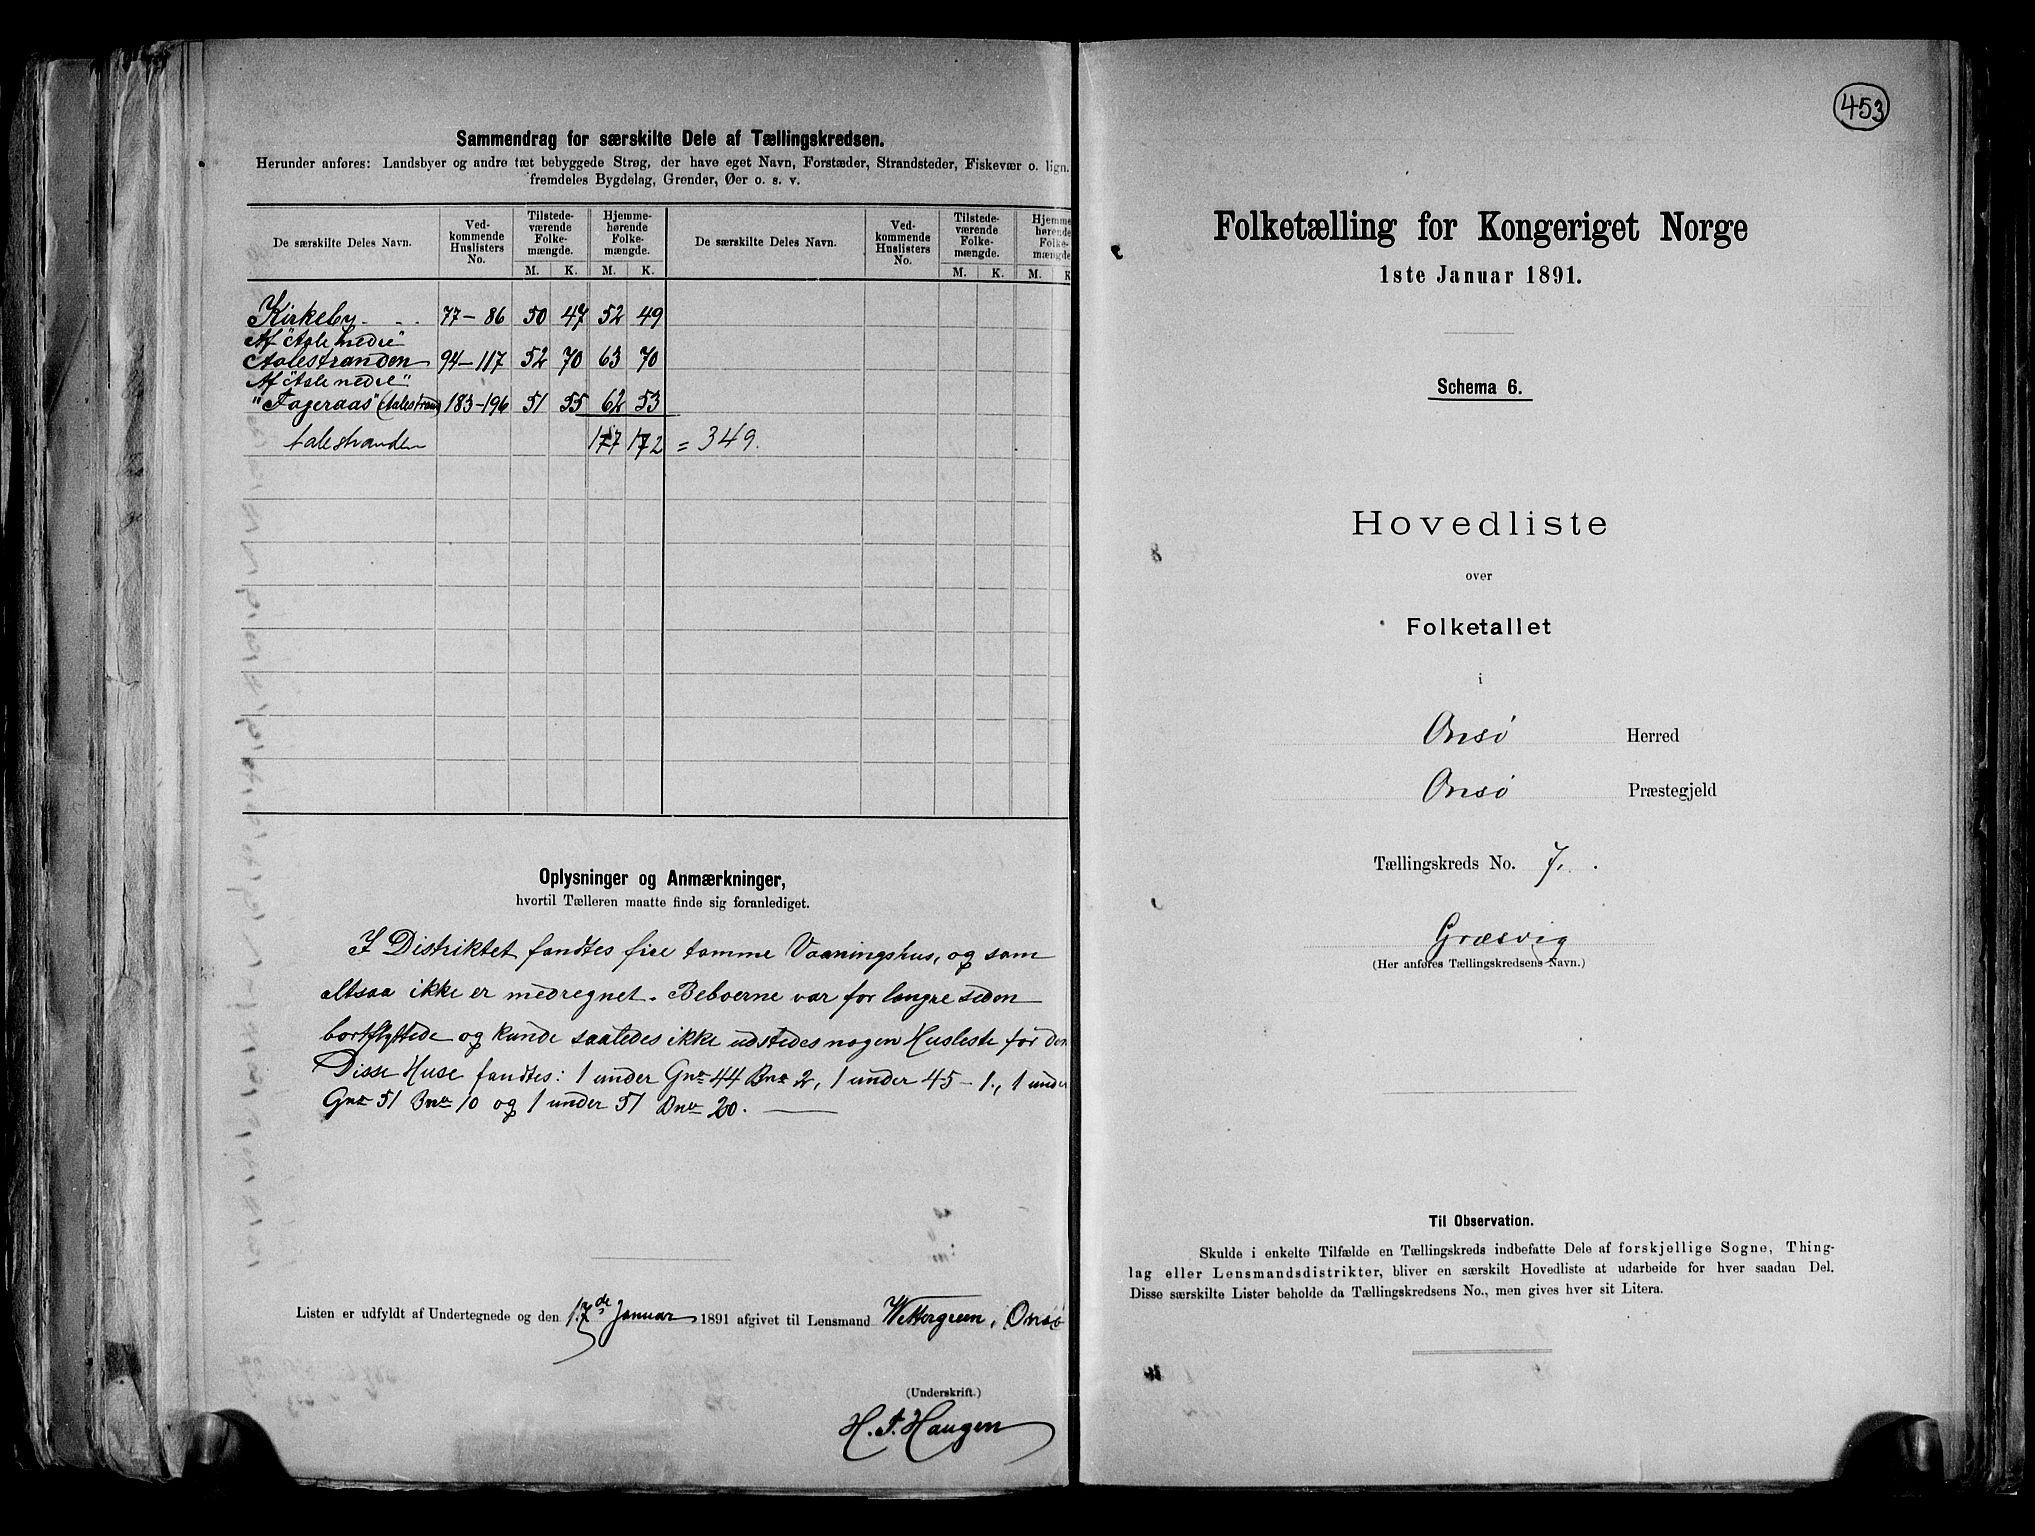 Sammendrag for særskilte Dele af Tællingskredsen.
Herunder anføres: Landsbyer og andre tæt bebyggede Strøg, der have eget Navn, Forstæder, Strandsteder, Fiskevær o. lign.
fremdeles Bygdelag, Grender, Øer o. s. v.
De særskilte Deles Navn. Ved-kommende Huslisters No. Tilstede-værende Folke-mængde. Hjemme-hørende Folke-mængde. De særskilte Deles Navn. Ved-kommende Huslisters No. Tilstede-værende Folke-mængde. Hjemme-hørende Folke-mængde
M. K. M. K. M. K. M. K
Kirkeby - - . 77-86 50 47 52 49
Af "Aale nedre"
Aalestranden 94-117 52 70 63 70
Af "Aale nedre"
"Fageraas" (Aalestrand 183-196 51 55 62 53
Aalestranden 177 172 = 349.
Oplysninger og Anmærkninger,
hvortil Tælleren maatte finde sig foranlediget.
I Distriktet fandtes fire tomme Vaaningshus, og som
altsaa ikke er medregnet. Beboerne var for længre siden
bortflyttede og kunde saaledes ikke udstedes nogen Husleste for dem
Disse Huse fandtes: 1 under Gnr 44 Bnr 2, 1 under 45-1., 1 under
Gnr 51 Bnr 10 og 1 under 51 Bnr 20.
Listen er udfyldt af Undertegnede og den 17de Januar 1891 afgivet til Lensmand Wettergreen, Onsø
(Underskrift.)
H. T. Haugen
453
Folketælling for Kongeriget Norge
1ste Januar 1891.
Schema 6.
Hovedliste
over
Folketallet
i
Onsø Herred
Onsø Præstegjeld
Tællingskreds No. 7.
Græsvig
(Her anføres Tællingskredsens Navn.)
Til Observation.
Skulde i enkelte Tilfælde en Tællingskreds indbefatte Dele af forskjellige Sogne, Thing-
lag eller Lensmandsdistrikter, bliver en særskilt Hovedliste at udarbeide for hver saadan Del.
Disse særskilte Lister beholde da Tællingskredsens No., men gives hver sit Litera.